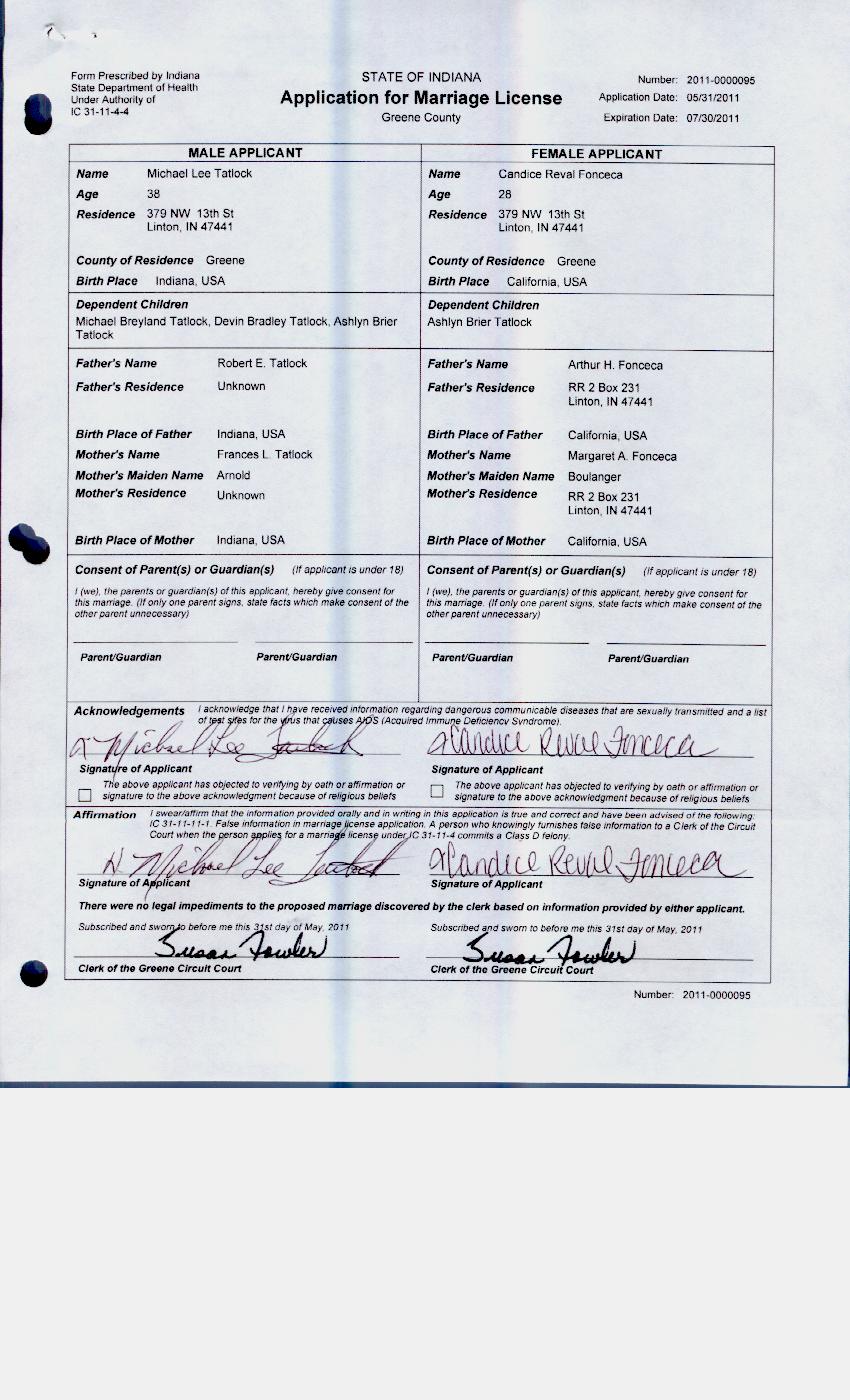 Form Prescribed by Indiana
State Department of Health
Under Authority of
IC 31-11-4-4
STATE OF INDIANA
Application for Marriage License
Greene County
Number: 2011-0000095
Application Date: 05/31/2011
Expiration Date: 07/30/2011
MALE APPLICANT
Name Michael Lee Tatlock
Age 38
Residence 379 NW 13th St
Linton, IN 47441
County of Residence Greene
Birth Place Indiana, USA
Dependent Children
Michael Breyland Tatlock, Devin Bradley Tatlock, Ashlyn Brier
Tatlock
Father's Name Robert E. Tatlock
Father's Residence Unknown
Birth Place of Father Indiana, USA
Mother's Name Frances L. Tatlock
Mother's Maiden Name Arnold
Mother's Residence Unknown
Birth Place of Mother Indiana, USA
Consent of Parent(s) or Guardian(s) (If applicant is under 18)
I (we), the parents or guardian(s) of this applicant, hereby give consent for
this marriage. (If only one parent signs, state facts which make consent of the
other parent unnecessary)
Parent/Guardian Parent/Guardian
FEMALE APPLICANT
Name Candice Reval Fonceca
Age 28
Residence 379 NW 13th St
Linton, IN 47441
County of Residence Greene
Birth Place California, USA
Dependent Children
Ashlyn Brier Tatlock
Father's Name Arthur H. Fonceca
Father's Residence RR 2 Box 231
Linton, IN 47441
Birth Place of Father California, USA
Mother's Name Margaret A. Fonceca
Mother's Maiden Name Boulanger
Mother's Residence RR 2 Box 231
Linton, IN 47441
Birth Place of Mother California, USA
Consent of Parent(s) or Guardian(s) (If applicant is under 18)
I (we), the parents or guardian(s) of this applicant, hereby give consent for
this marriage. (If only one parent signs, state facts which make consent of the
other parent unnecessary)
Parent/Guardian Parent/Guardian
Acknowledgements I acknowledge that I have received information regarding dangerous communicable diseases that are sexually transmitted and a list
of test sites for the virus that causes AIDS (Acquired Immune Deficiency Syndrome).
x Michael Lee Tatlock x Candice Reval Fonceca
Signature of Applicant Signature of Applicant
The above applicant has objected to verifying by oath or affirmation or
signature to the above acknowledgment because of religious beliefs
The above applicant has objected to verifying by oath or affirmation or
signature to the above acknowledgment because of religious beliefs
Affirmation I swear/affirm that the information provided orally and in writing in this application is true and correct and have been advised of the following:
IC 31-11-11-1. False information in marriage license application. A person who knowingly furnishes false information to a Clerk of the Circuit
Court when the person applies for a marriage license under IC 31-11-4 commits a Class D felony.
x Michael Lee Tatlock x Candice Reval Fonceca
Signature of Applicant Signature of Applicant
There were no legal impediments to the proposed marriage discovered by the clerk based on information provided by either applicant.
Subscribed and sworn to before me this 31st day of May, 2011 Subscribed and sworn to before me this 31st day of May, 2011
Susan Fowler Susan Fowler
Clerk of the Greene Circuit Court Clerk of the Greene Circuit Court
Number: 2011-0000095